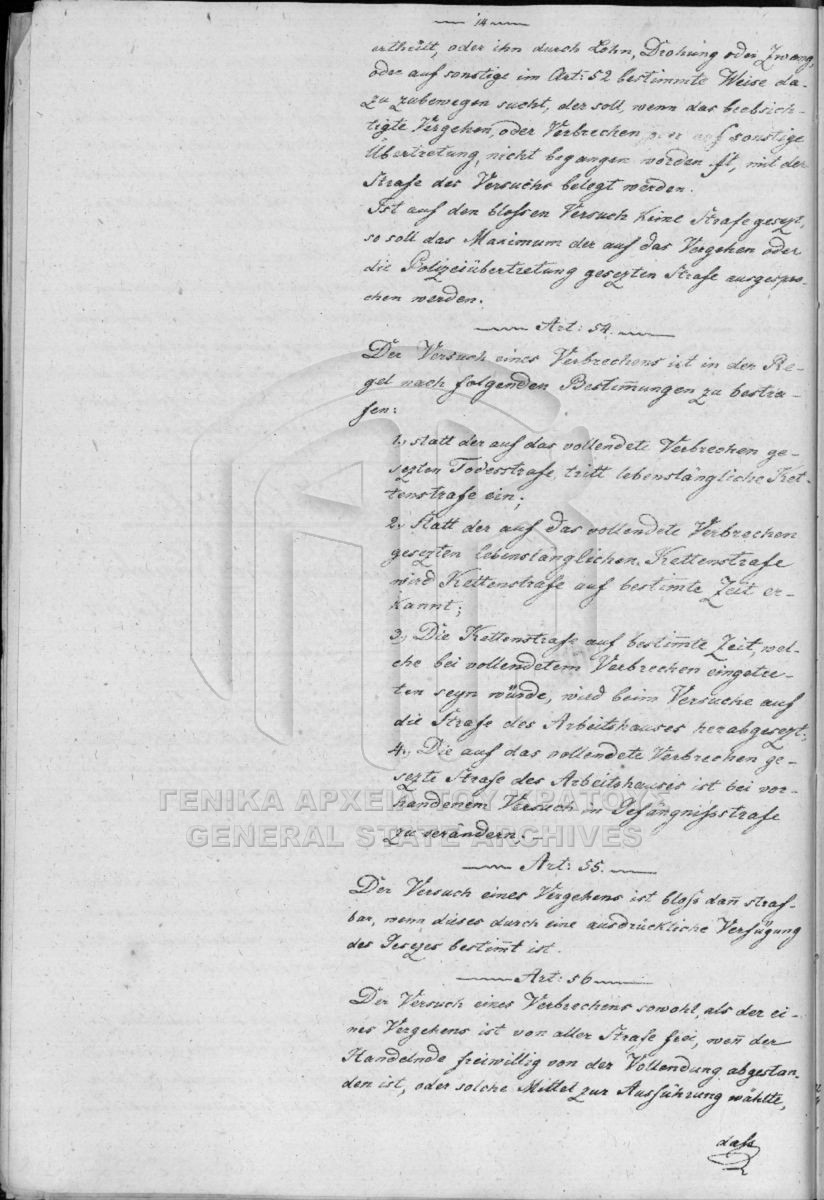 14
ertheilt, oder ihn durch Lohn, Drohung oder Zwang,
oder auf sonstige im Art: 52 bestimmte Weise da-
zu zubewegen sucht, der soll, wenn das beabsich-
tigte Vergehen, oder Verbrechen sonstige
Übertretung, nicht begangen worden ist, mit der
Strafe des Versuchs belegt werden.
Ist auf den blossen Versuch keine Strafe gesezt,
so soll das Maximum der auf das Vergehen oder
die Polizeiübertretung gesezten Strafe ausgespro-
chen werden.
Art: 54.
Der Versuch eines Verbrechens ist in der Re-
gel nach folgenden Bestim̄ungen zu bestra-
fen:
1., statt der auf das vollendete Verbrechen ge-
sezten Todesstrafe, tritt lebenslängliche Ket-
tenstrafe ein;
2., Statt der auf das vollendete Verbrechen
gesezten lebenslänglichen Kettenstrafe
wird Kettenstrafe auf bestim̄te Zeit er-
kannt;
3., Die Kettenstrafe auf bestim̄te Zeit, wel-
che bei vollendetem Verbrechen eingetre-
ten seyn würde, wird beim Versuche auf
die Strafe des Arbeitshauses herabgesezt;
4., Die auf das vollendete Verbrechen ge-
sezte Strafe des Arbeitshauses ist bei vor-
handenem Versuch in Gefängnißstrafe
zu verändern. -
Art: 55.
Der Versuch eines Vergehens ist bloß dan̄ straf-
bar, wenn dieses durch eine ausdrückliche Verfügung
des Gesezes bestim̄t ist.
Art: 56
Der Versuch eines Verbrechens sowohl, als der ei-
nes Vergehens ist von aller Strafe frei, wen̄ der
Handelnde freiwillig von der Vollendung abgestan-
den ist, oder solche Mittel zur Ausführung wählte,
daß
ΓΕΝΙΚΑ ΑΡΧΕΙΑ ΤΟΥ ΚΡΑΤΟΥΣ
GENERAL STATE ARCHIVES